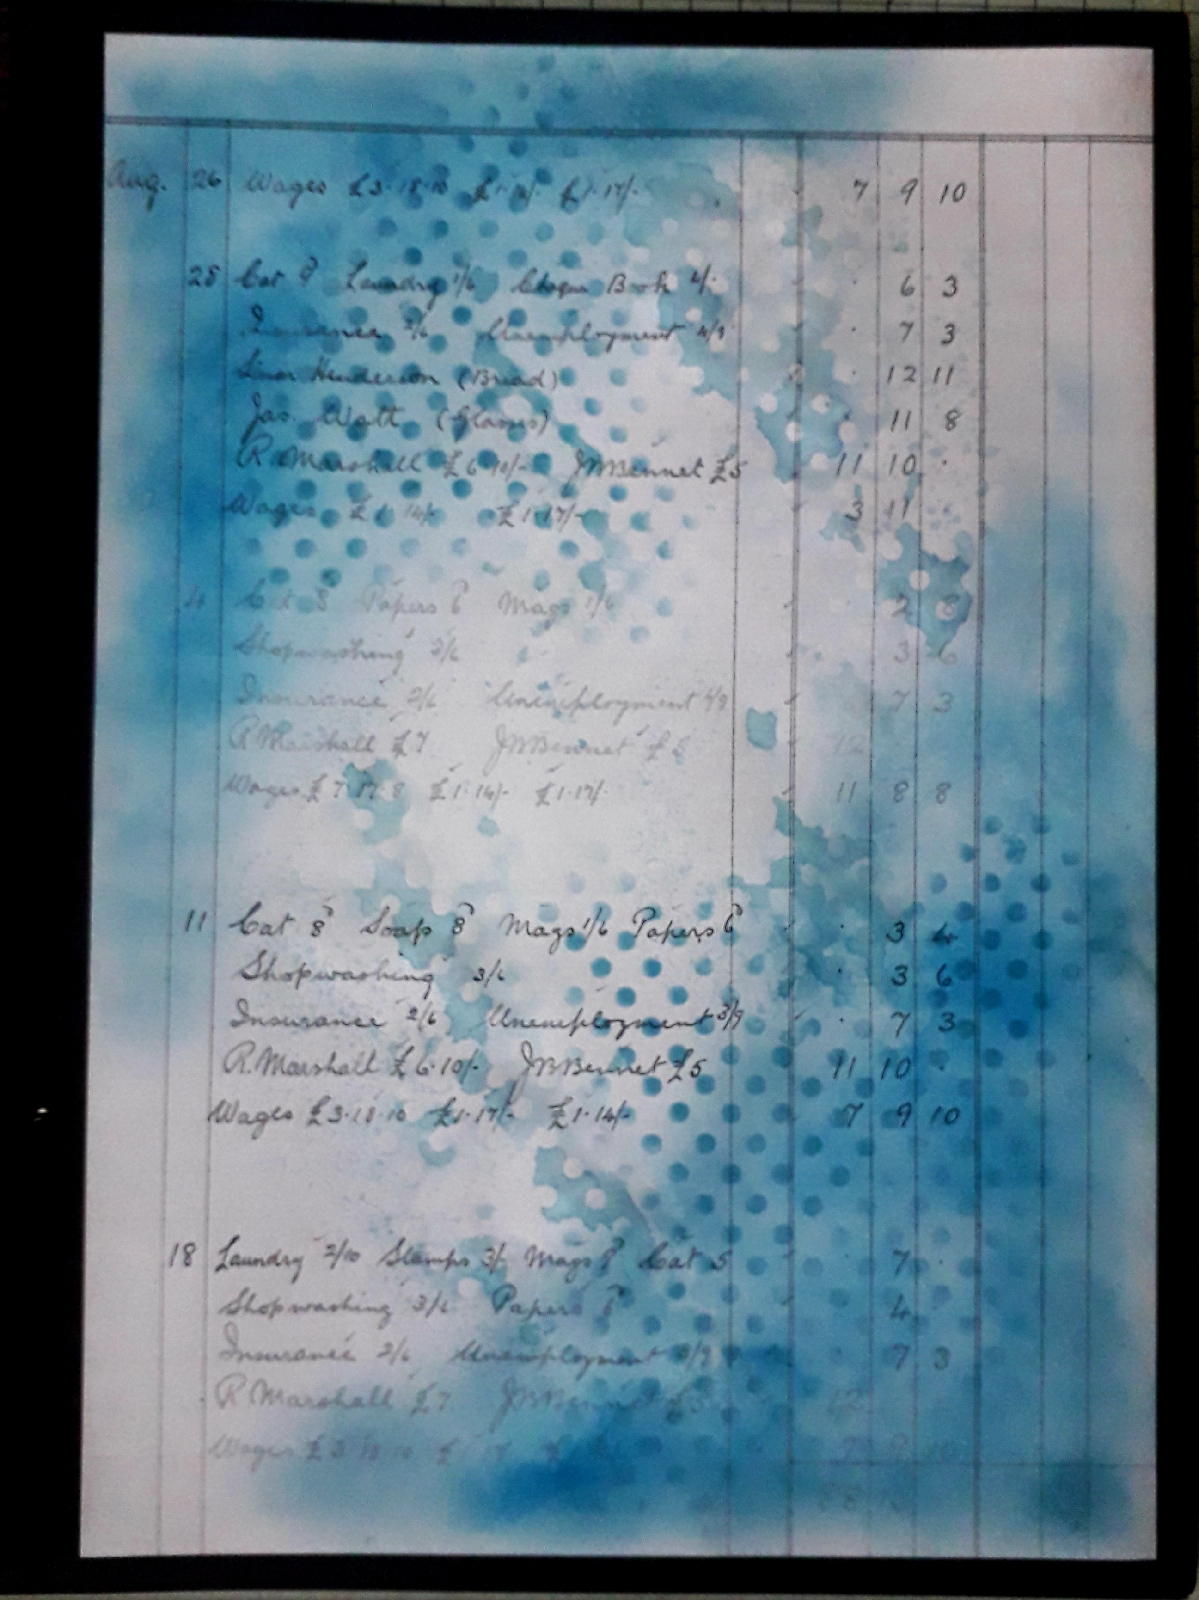 Aug. 26 Wages £3.18.10 £1.14/- £1.17/- 7 9 10
28 Cat 9 Laundry 1/6 Cheque Book 4/- 6 3
Insurance 2/6 Unemployment 4/9 7 3
Henderson (Bread) 12 11
Jas. Watt (Glasses) 11 8
R. Marshall £6.10/- JMBennet £5 11 10 .
Wages £1.14/- £1.17/- 3 11
4 Cat 8 Papers 6 Mags 1/6 2 8
Shopwashing 3/6 3 6
Insurance 2/6 Unemployment 4/9 7 3
R Marshall £7 JMBennet £5 12
Wages £7.17.8 £1.14/- £1.17/- 11 8 8
11 Cat 8 Soap 8 Mags 1/6 Papers 6 3 4
Shopwashing 3/6 3 6
Insurance 2/6 Unemployment 3/9 7 3
R. Marshall £6.10/- JMBennet £5 11 10 .
Wages £3.18.10 £1.17/- £1.14/- 7 9 10
18 Laundry 2/10 Stamps 3/- Mags 9 Cat 5 7 .
Shopwashing 3/6 Papers 6 4
Insurance 2/6 Unemployment 7 3
R Marshall £7 JMBennet £5 12
Wages £3.18.10 £1.17 7 9 10